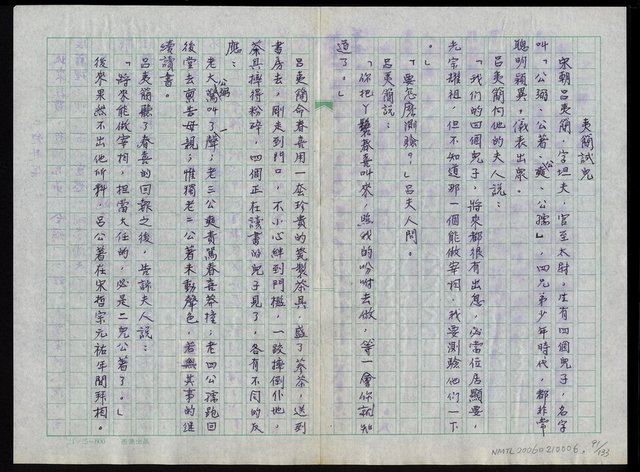 夷簡試兒
宋朝呂夷簡，字坦夫，官至太尉。生有四個兒子，名字
叫「公弼、公著、公奭、公孺」，四兄弟少年時代，都非常
聰明穎異，儀表出衆。
呂夷簡向他的夫人說：
「我們的四個兒子，將來都很有出息，必當任居顯要，
光宗耀祖，但不知道那一個能做宰相，我要測驗他們一下
。」
「要怎麽測驗？」呂夫人問。
呂夷簡說：
「你把丫鬟春喜叫來，照我的吩咐去做，等一會你就知
道了。」
呂夷簡命春喜用一套珍貴的瓷製茶具，盛了茶，送到
書房去，剛走到門口，不小心絆到門檻，一跤摔倒仆地，
茶具摔得粉碎，四個正在讀書的兒子見了，各有不同的反
應：
老大公弼驚叫了一聲；老三公奭責罵春喜莽撞；老四公孺跑回
後堂去禀告母親；惟獨老二公著未動聲色，若無其事的繼
續讀書。
呂夷簡聽了春喜的回報之後，告訴夫人說：
「將來能做宰相，担當大任的，必是二兒公著了。」
後來果然不出他所料，呂公著在宋哲宗元祐年間拜相。
NMTL20060210006
91/133